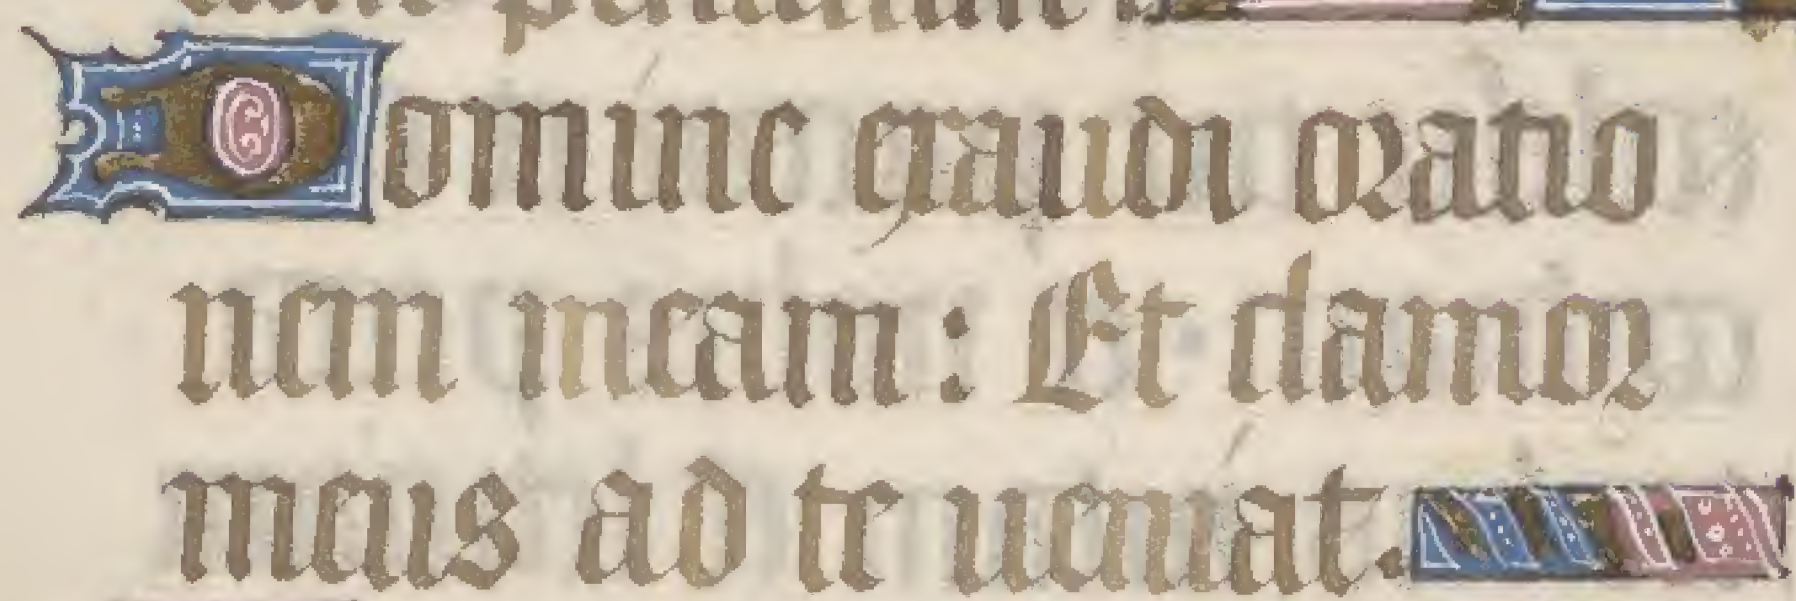 Domine gaudi oratio
nem meam: Et clamor
meus ad te ueniat.